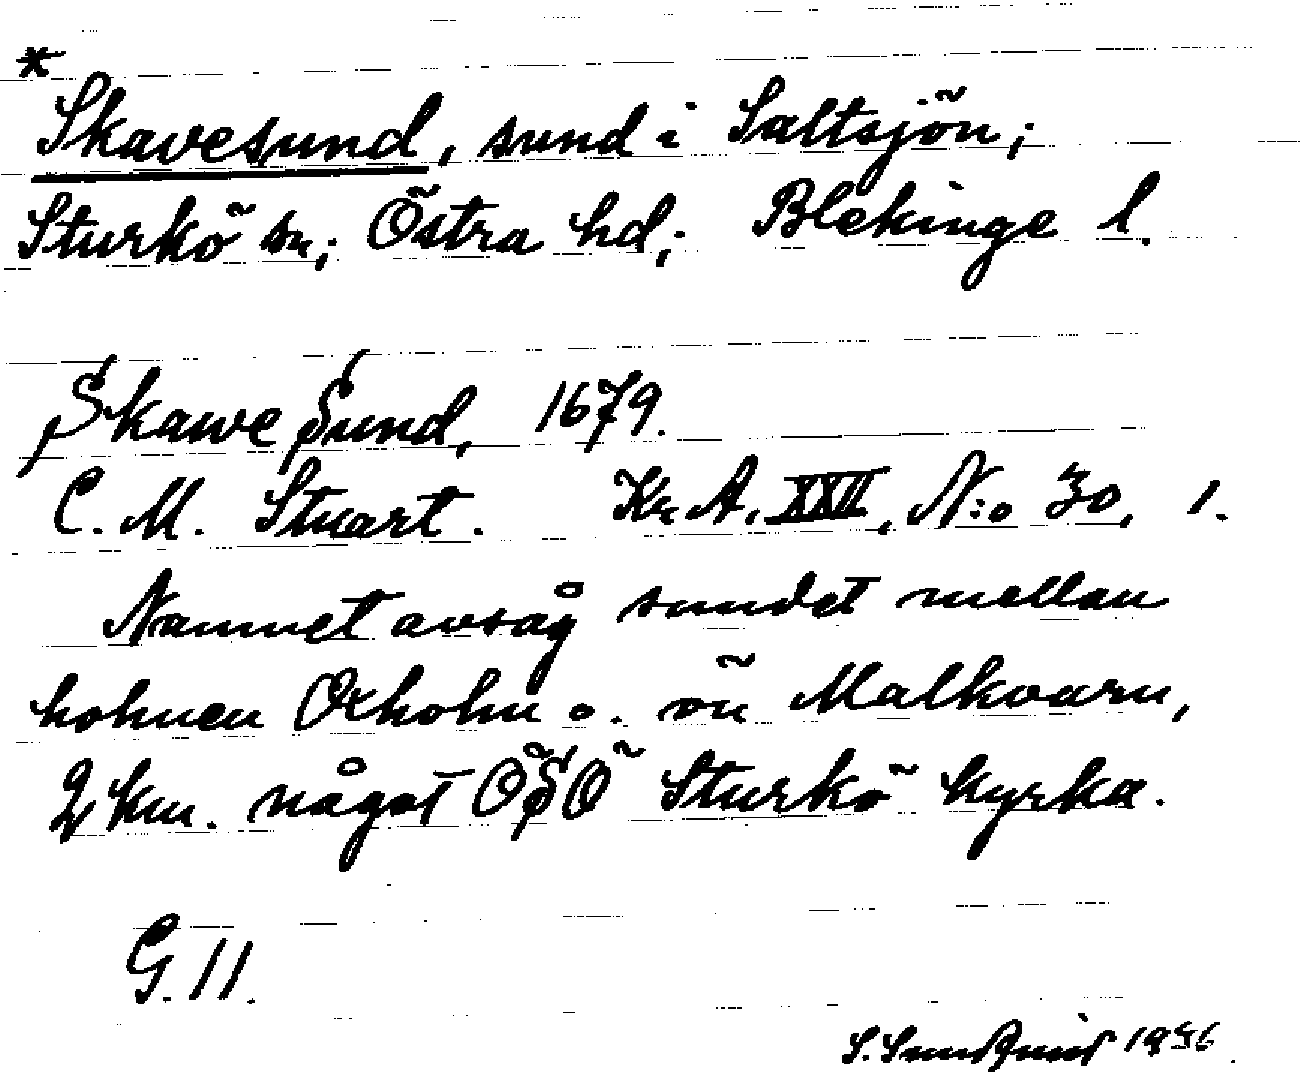 *
Skavesund, sund i Saltsjön;
Sturkö sn; Östra hd; Blekinge l.
Skawe Sund, 1679.
C. M. Stuart. Kr. A. XXII, N:o 30, 1.
Namnet avsåg sundet mellan
holmen Oxholm o. ön Malkvarn,
2 km. något ÖSÖ Sturkö kyrka.
G. 11.
S. 1936.